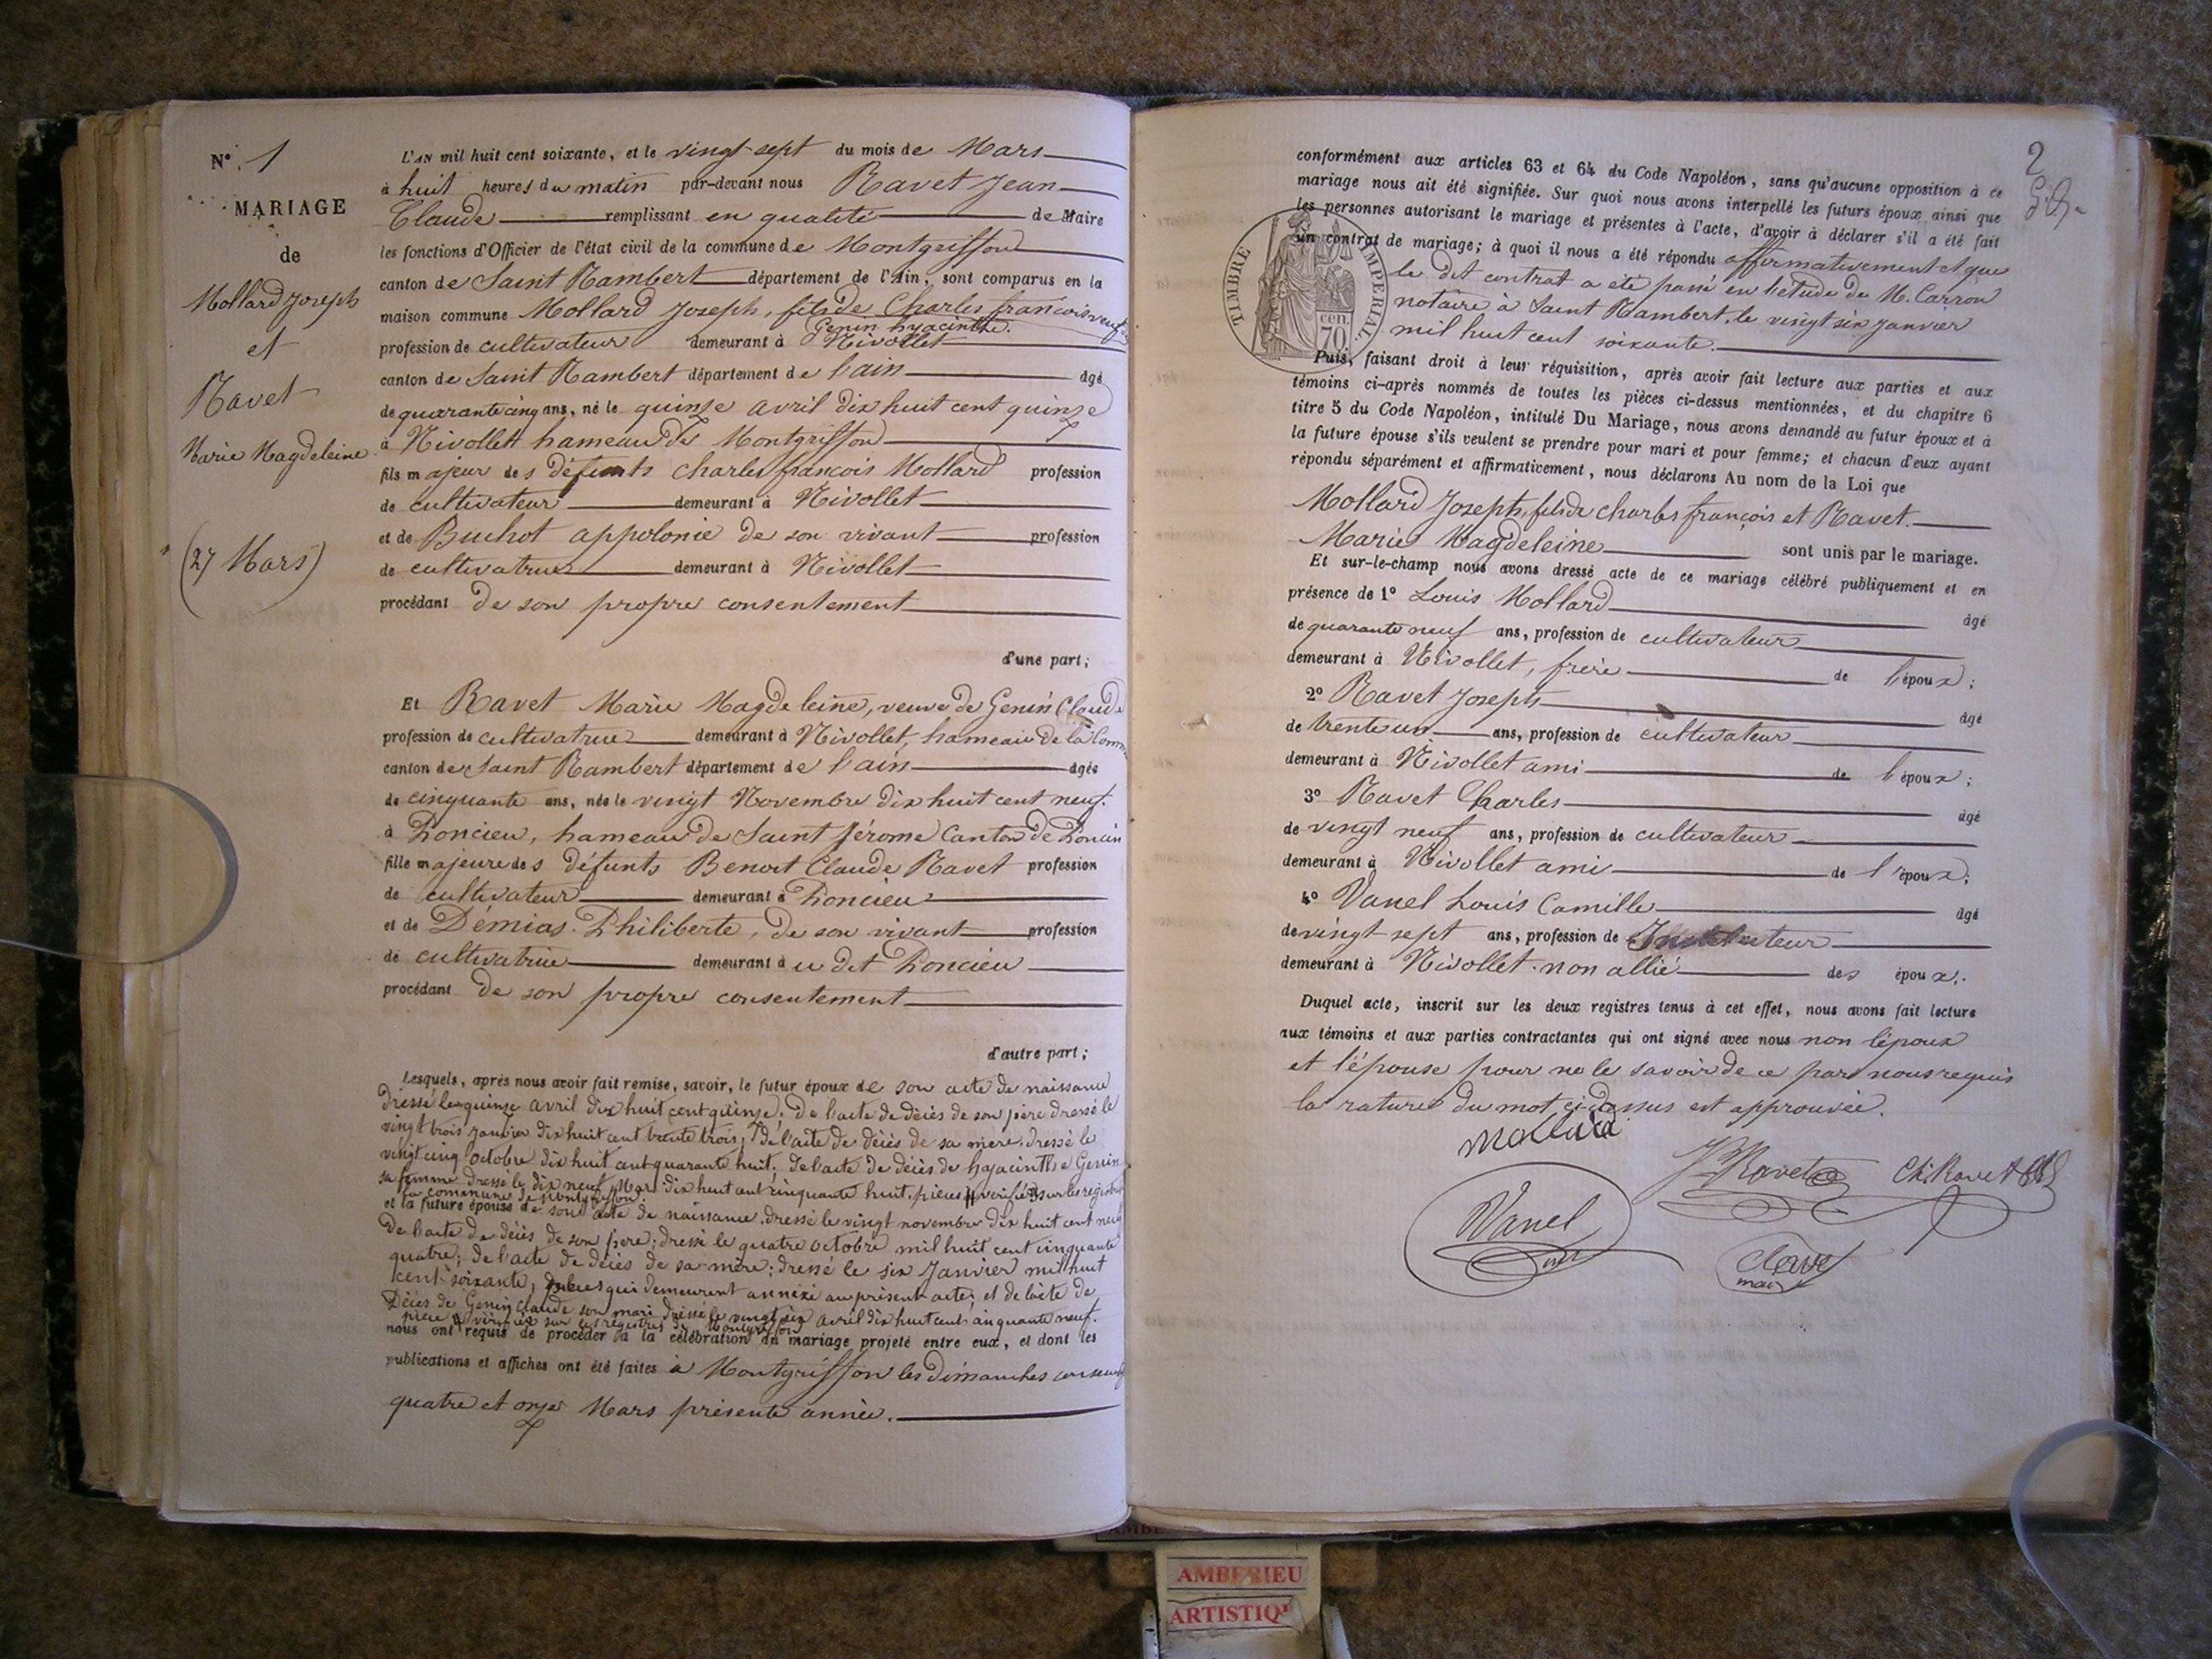 N° 1
MARIAGE
de
Mollard Joseph
et
Ravet
Marie Magdeleine
(27 Mars)
L'AN mil huit cent soixante, et le vingt-sept du mois de Mars
à huit heures du matin par-devant nous Ravet Jean
Claude remplissant en qualité de Maire
les fonctions d'Officier de l'état civil de la commune de Montgriffon
canton de Saint Rambert département de l'Ain, sont comparus en la
maison commune Mollard Joseph, fils de Charles françois veuf de
Genin hyacinthe.
profession de cultivateur demeurant à Nivollet
canton de Saint Rambert département de l'ain âgé
de quarante cinq ans, né le quinze avril dix huit cent quinze
à Nivollett hameau de Montgriffon
fils majeur des défunts Charles françois Mollard profession
de cultivateur demeurant à Nivollet
et de Buchot appolonie de son vivant profession
de cultivatrice demeurant à Nivollet
procédant de son propre consentement
d'une part;
Et Ravet Marie Magdeleine, veuve de Genin Claude
profession de cultivatrice demeurant à Nivollet, hameau de la Comm
canton de Saint Rambert département de l'ain âgée
de cinquante ans, née le vingt Novembre dix huit cent neuf.
à Poncieu, hameau de Saint Jérome Canton de Poncin
fille majeure des défunts Benoit Claude Ravet profession
de cultivateur demeurant à Poncieu
et de Démias Philiberte, de son vivant profession
de cultivatrice demeurant à u dit Poncieu
procédant de son propre consentement
d'autre part;
Lesquels, après nous avoir fait remise, savoir, le futur époux de son acte de naissance
dressé le quinze avril dix huit cent quinze; de l'acte de décès de son père dressé le
vingt trois Janvier dix huit cent trente trois; de l'acte de décès de sa mère, dressé le
vingt cinq octobre dix huit cent quarante huit; de l'acte de décès de hyacinthe Genin
sa femme dressé le dix neuf Mars dix huit cent cinquante huit, pièces vérifiées sur les registres
de la commune de Montgriffon
et la future épouse de son acte de naissance dressé le vingt novembre dix huit cent neuf
de l'acte de décès de son père; dressé le quatre octobre mil huit cent cinquante
quatre; de l'acte de décès de sa mère; dressé le six Janvier mil huit
cent soixante, pièces qui demeurent annexé au présent acte; et de l'acte de
Décès de Genin Claude son mari dressé le vingt six avril dix huit cent cinquante neuf.
pièce vérifiée sur les registres de Montgriffon
nous ont requis de procéder à la célébration du mariage projeté entre eux, et dont les
publications et affiches ont été faites à Montgriffon les dimanches consecutifs
quatre et onze Mars présente année.
2
conformément aux articles 63 et 64 du Code Napoléon, sans qu'aucune opposition à ce
mariage nous ait été signifiée. Sur quoi nous avons interpellé les futurs époux ainsi que
les personnes autorisant le mariage et présentes à l'acte, d'avoir à déclarer s'il a été fait
un contrat de mariage; à quoi il nous a été répondu affirmativement et que
le dit contrat a été passé en l'etude de M. Carron
notaire à Saint Rambert, le vingt six Janvier
mil huit cent soixante.
TIMBRE IMPERIAL.
cen.
70
Puis, faisant droit à leur réquisition, après avoir fait lecture aux parties et aux
témoins ci-après nommés de toutes les pièces ci-dessus mentionnées, et du chapitre 6
titre 5 du Code Napoléon, intitulé Du Mariage, nous avons demandé au futur époux et à
la future épouse s'ils veulent se prendre pour mari et pour femme; et chacun d'eux ayant
répondu séparément et affirmativement, nous déclarons Au nom de la Loi que
Mollard Joseph, fils de charles françois et Ravet.
Marie Magdeleine sont unis par le mariage.
Et sur-le-champ nous avons dressé acte de ce mariage célébré publiquement et en
présence de 1° Louis Mollard âgé
de quarante neuf ans, profession de cultivateur
demeurant à Nivollet, frère de l'époux;
2° Ravet Joseph âgé
de trente un ans, profession de cultivateur
demeurant à Nivollet ami de l'époux;
3° Ravet Charles âgé
de vingt neuf ans, profession de cultivateur
demeurant à Nivollet ami de l'époux;
4° Vanel Louis Camille âgé
de vingt-sept ans, profession de Instituteur
demeurant à Nivollet. non allié des époux;
Duquel acte, inscrit sur les deux registres tenus à cet effet, nous avons fait lecture
aux témoins et aux parties contractantes qui ont signé avec nous non l'époux
et l'épouse pour ne le savoir de ce par nous requis
la rature du mot ci-dessus est approuvée.
Mollard
J Ravet
Ch. Ravet
Vanel
maire
AMBERIEU
ARTISTIQ